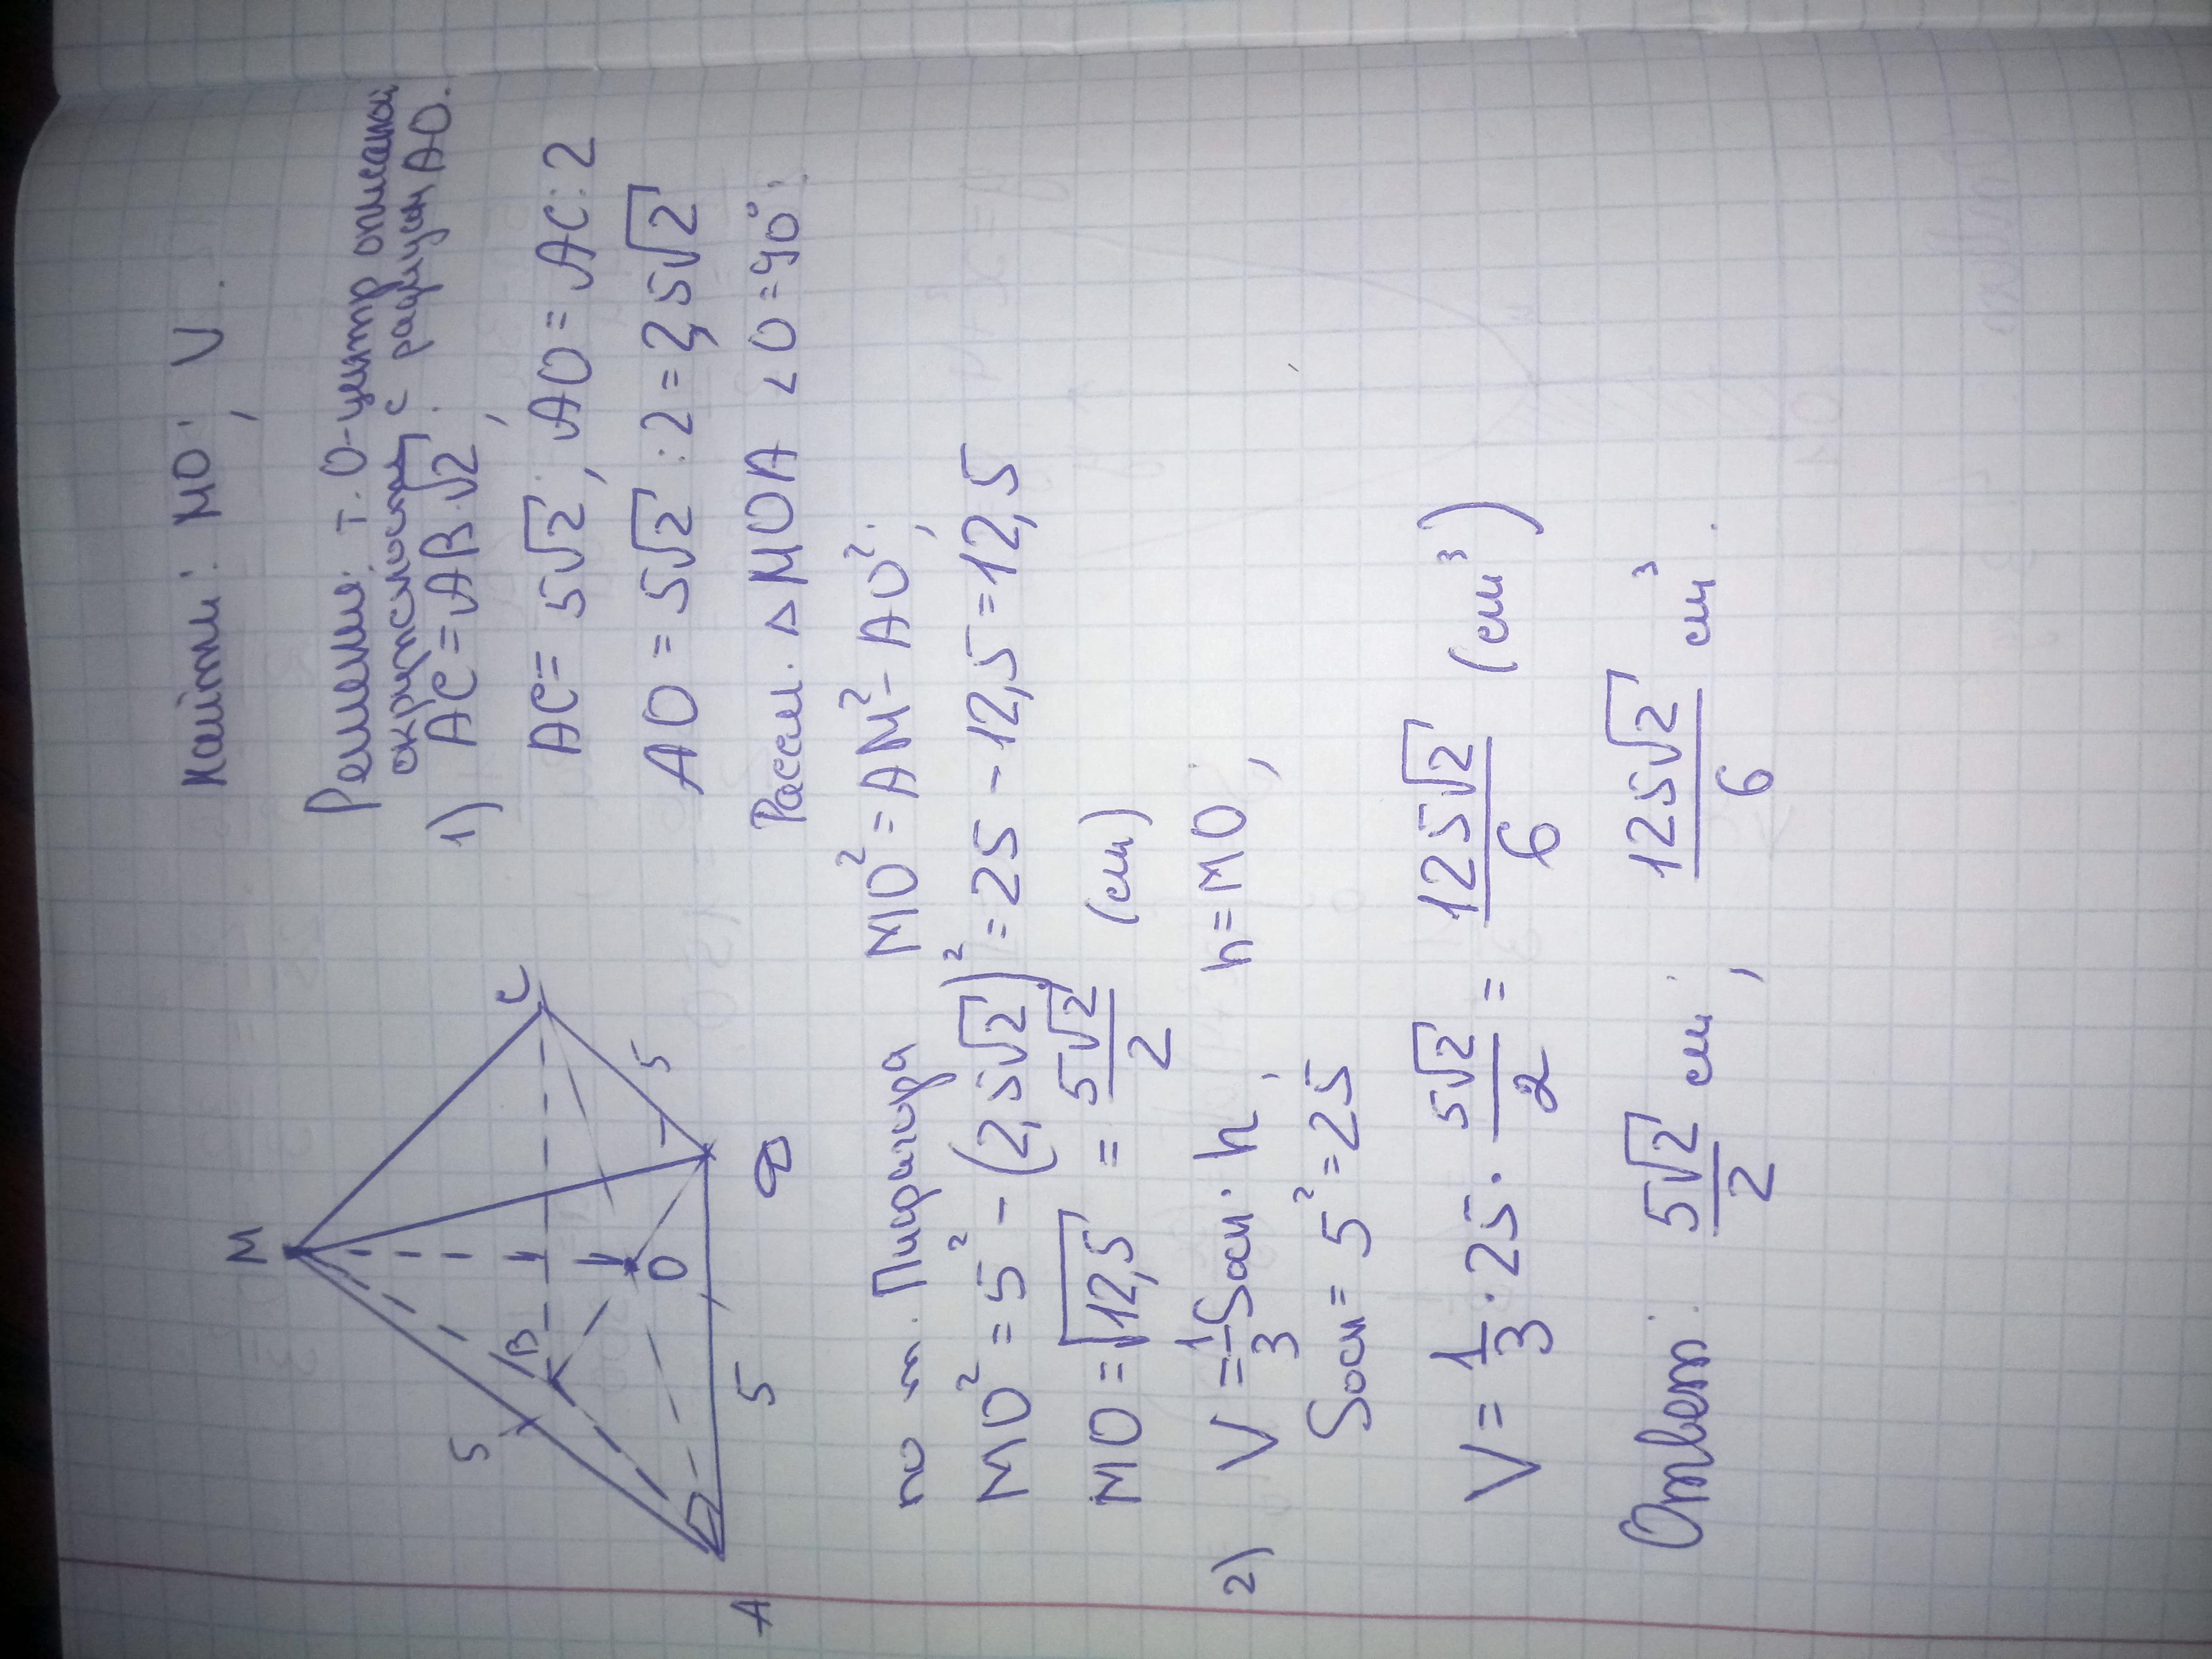 Найти: МО; V.
M
C
B
O
5
5
5
A
D
Решение: т. О-центр описаной
окружности, с радиусом АО.
1) AC = AB·√2;
AC = 5√2; AO = AC:2
AO = 5√2 : 2 = 2,5√2
Рассм. △MOA ∠O = 90°;
по т. Пифагора MO² = AM² - AO²;
MO² = 5² - (2,5√2)² = 25 - 12,5 = 12,5
MO = √12,5 = 5√2/2 (см)
2) V = 1/3 Sосн · h; h = MO;
Sосн = 5² = 25
V = 1/3 · 25 · 5√2/2 = 125√2/6 (см³)
Ответ: 5√2/2 см; 125√2/6 см³.